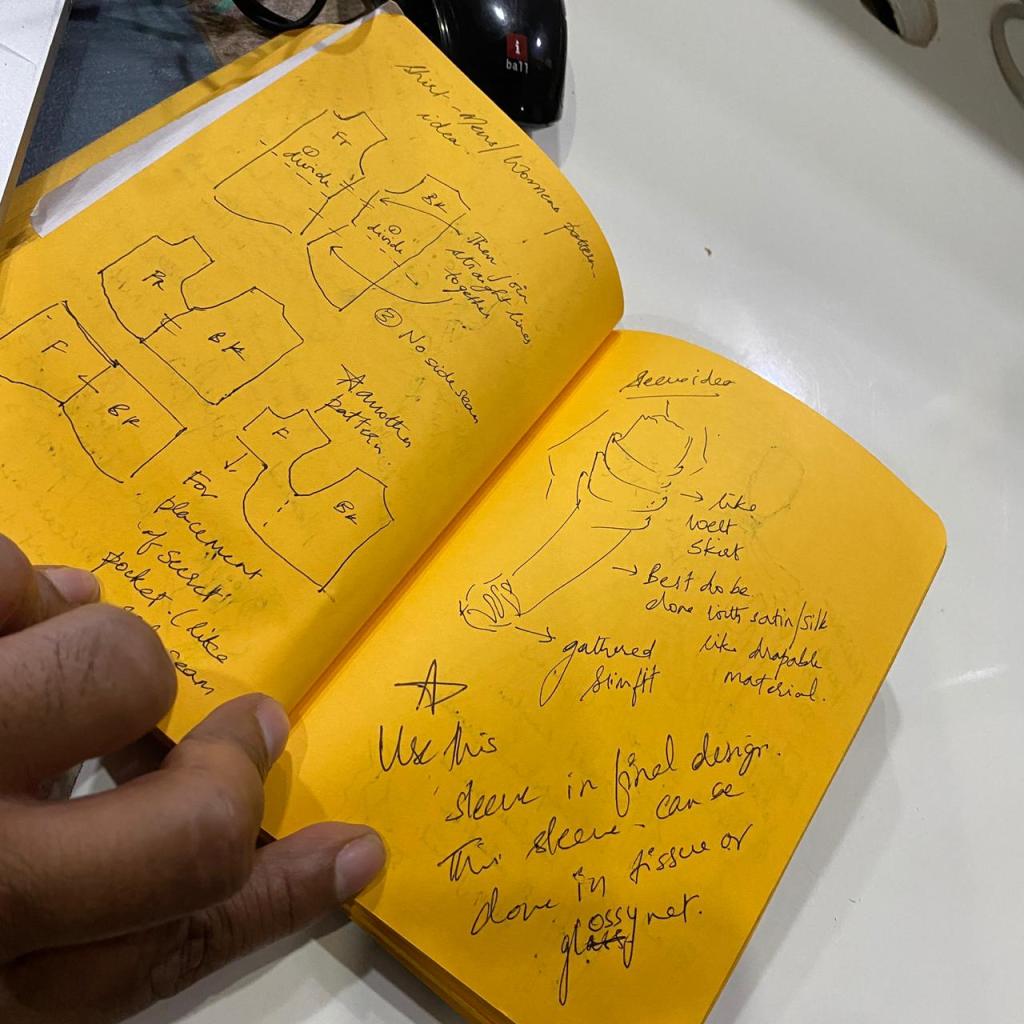 i
ball
Shirt - Mens/Womens pattern
idea.
Fr
① divide
BK
① divide
Then join
straight lines
together
③ No side seam
BK
F
BK
☆ another
pattern.
F
BK
For
placement
of secret
pocket. (like
seam
→ like
welt
skirt
→ Best to be
done with satin/silk
like drapable
material.
→ gathered
slimfit
☆
Use this
sleeve in final design.
This sleeve - can be
done in tissue or
glossy net.